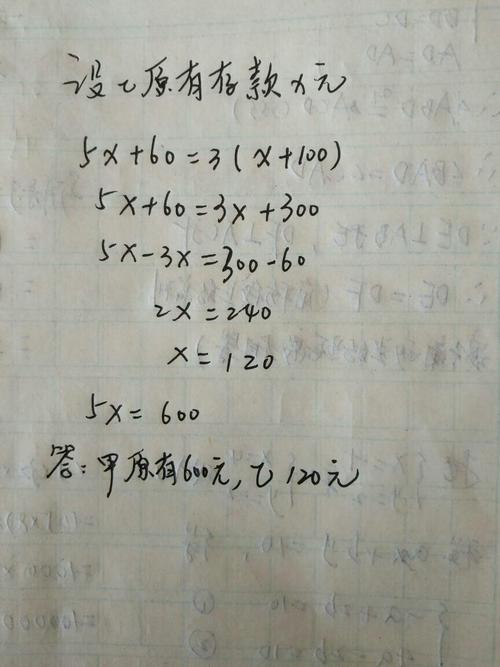 设乙原有存款x元
5x+60=3(x+100)
5x+60=3x+300
5x-3x=300-60
2x=240
x=120
5x=600
答:甲原有600元,乙120元